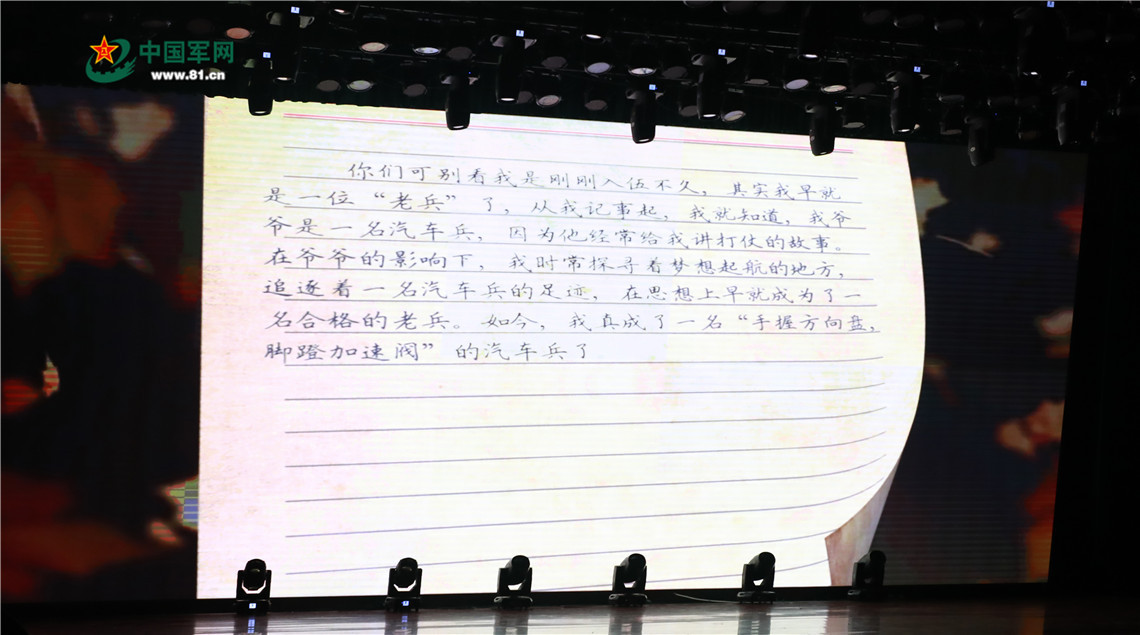 中国军网
www.81.cn
你们可别看我是刚刚入伍不久，其实我早就
是一位“老兵”了，从我记事起，我就知道，我爷
爷是一名汽车兵，因为他经常给我讲打仗的故事。
在爷爷的影响下，我时常探寻着梦想起航的地方，
追逐着一名汽车兵的足迹，在思想上早就成为了一
名合格的老兵。如今，我真成了一名“手握方向盘，
脚蹬加速阀”的汽车兵了